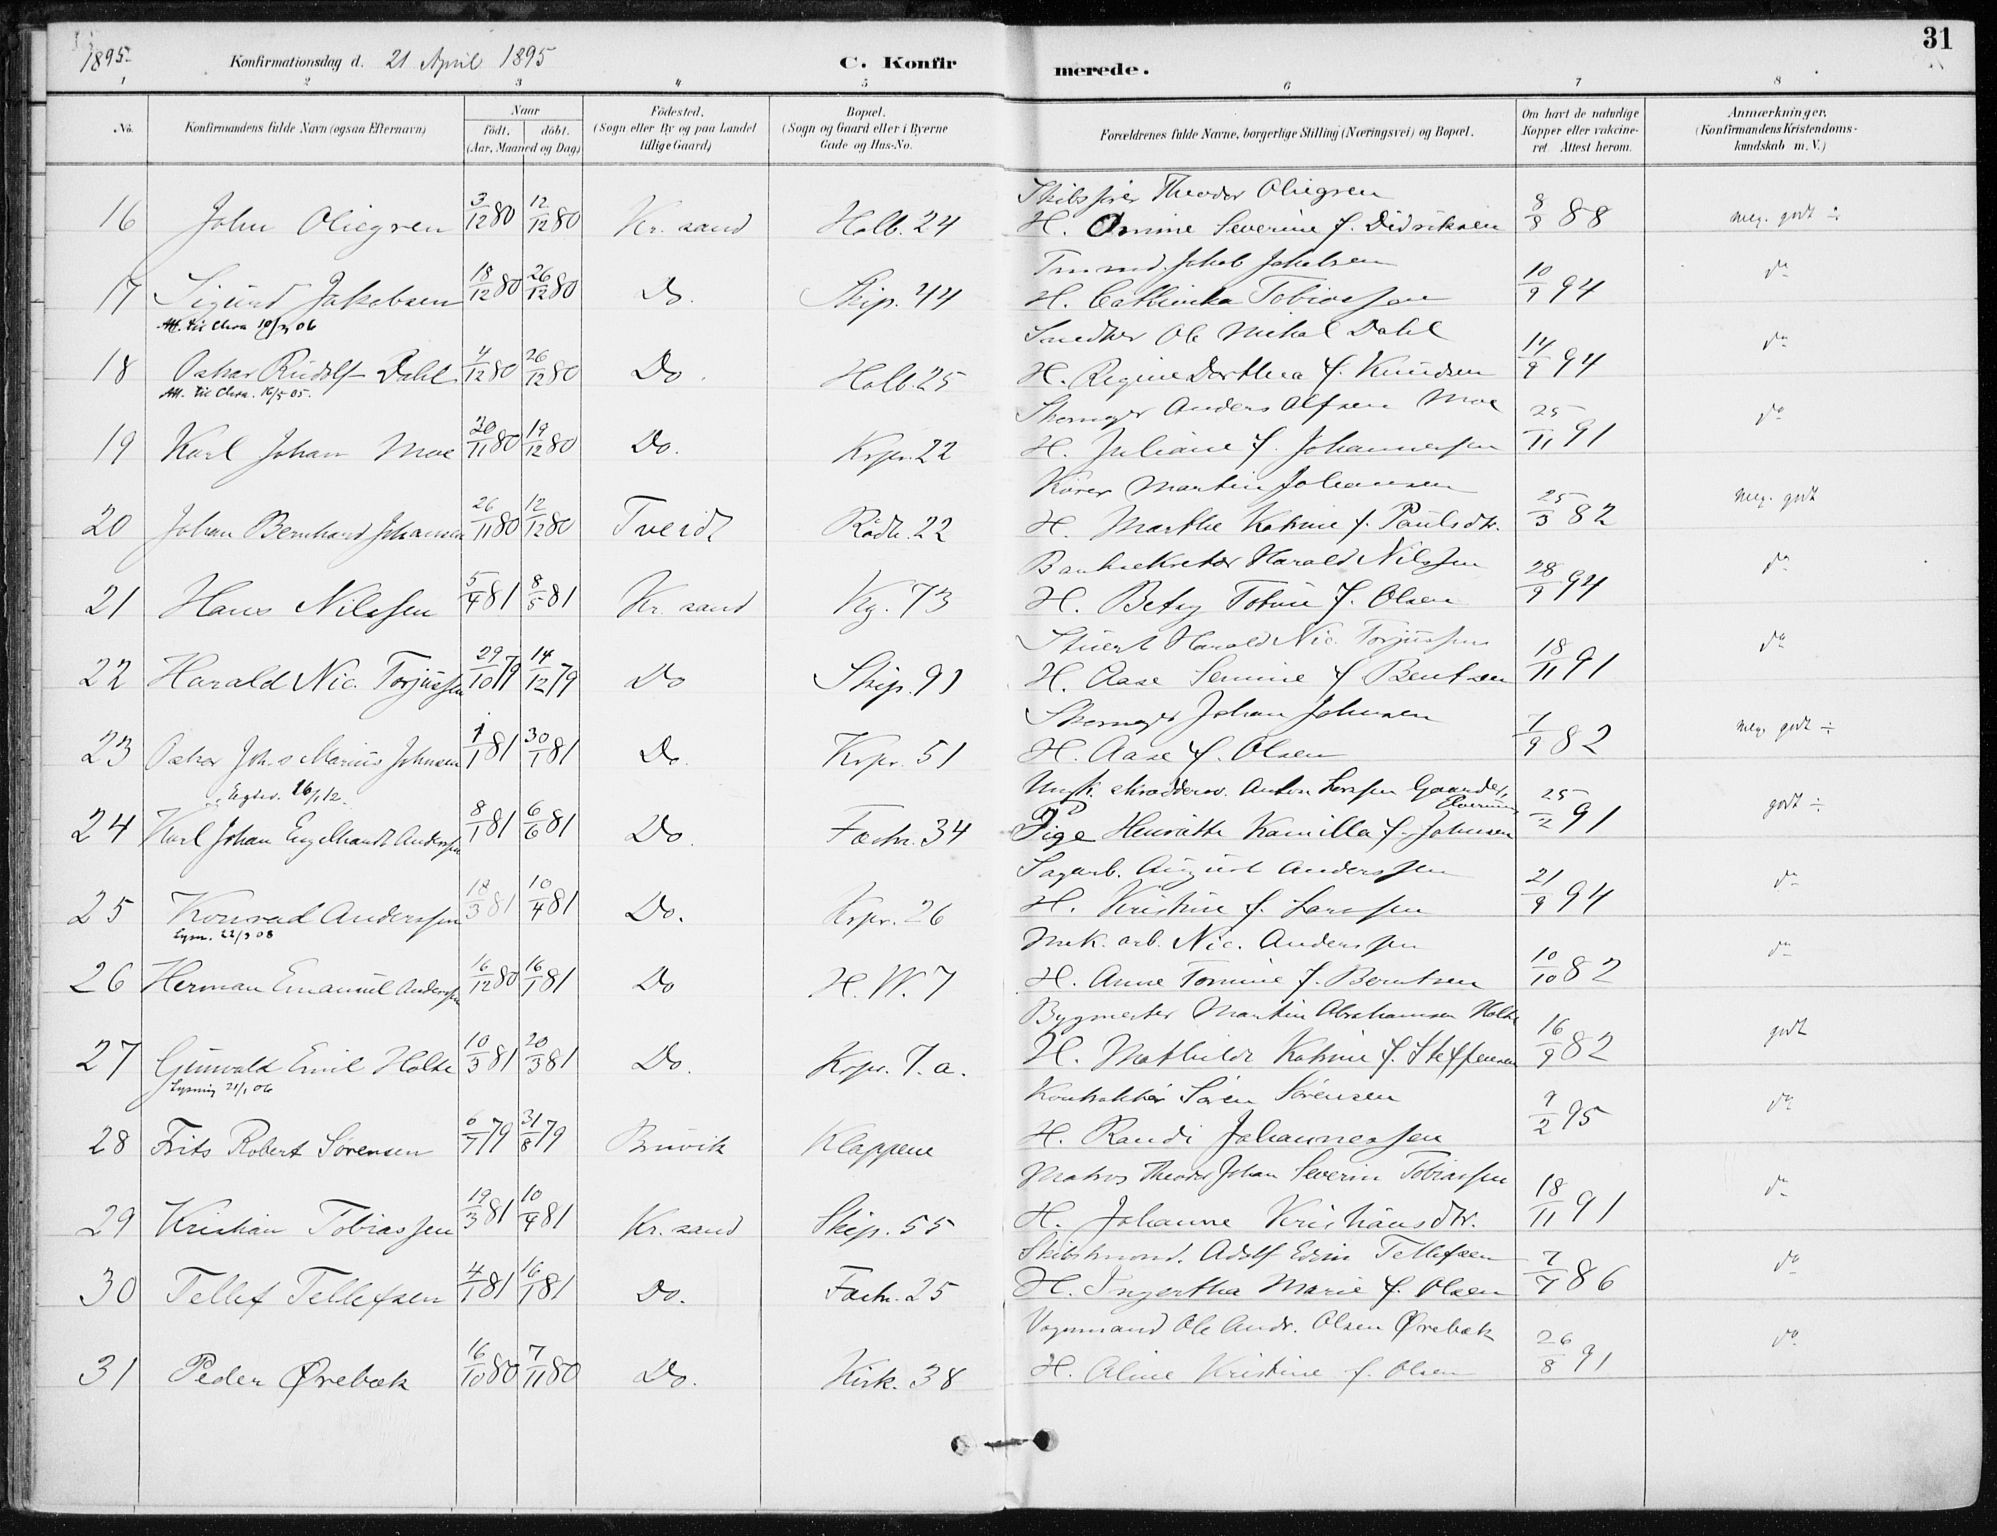 1895
Konfirmationsdag d. 21 April 1895
C. Konfirmerede.
31
1 2 3 4 5 6 7 8
No.
Konfirmandens fulde Navn (ogsaa Efternavn)
Naar
födt. döbt.
(Aar, Maaned og Dag)
Födested.
(Sogn eller By og paa Landet
tillige Gaard)
Bopæl.
(Sogn og Gaard eller i Byerne
Gade og Hus-No.
Forældrenes fulde Navne, borgerlige Stilling (Næringsvei) og Bopæl.
Om havt de naturlige
Kopper eller vakcine-
ret. Attest herom.
Anmærkninger.
(Konfirmandens Kristendoms-
kundskab m. V.)
Skibsfører Theodor Oliegren
16 John Oliegren 3/12 80 12/12 80 Kr. sand Holb. 24 H. Omine Severine f. Didriksen 8/8 88 meg. godt ÷
Tmmd. Jakob Jakobsen
17 Sigurd Jakobsen 18/12 80 26/12 80 Do. Skip. 44 H. Cathinka Tobiassen 10/9 94 do
Att. til Chra 10/3 06
Snedker Ole Mikal Dahl
18 Oskar Rudolf Dahl 4/12 80 26/12 80 Do. Holb. 25 H. Regine Dorthea f. Knudsen 14/9 94 do
Att. til Chra. 16/5 05.
Skomager Anders Alfsen Moe
19 Karl Johan Moe 20/11 80 19/12 80 Do. Krpr. 22 H. Juliane f. Johannessen 25/11 91 do
Kører Martin Johansen
20 Johan Bernhard Johansen 26/11 80 12/12 80 Tveidt Rådh. 22 H. Marthe Katrine f. Paulsdtr. 25/3 82 meg. godt
Banksekretær Harald Nilssen
21 Hans Nilssen 5/4 81 8/5 81 Kr. sand Kg. 73 H. Betsy Tobine f. Olsen 28/9 94 do
Stuert Harald Nic. Torjussen
22 Harald Nic. Torjussen 29/10 79 14/12 79 Do Skip. 91 H. Aase Semine f. Bentsen 18/11 91 do
Skomager Johan Johnsen
23 Oskar Joh.s Marius Johnsen 1/1 81 30/1 81 Do. Krpr. 51 H. Aase f. Olsen 7/9 82 meg. godt ÷
16/1 12.
Ungk. skrædders. Anton Larsen Gaarder, Elverum
24 Karl Johan Engelhardt Anderssen 8/1 81 6/6 81 Do. Fæstn. 34 Pige Henriette Kamilla f. Johnsen 25/2 91 godt ÷
Sagarb. August Anderssen
25 Konrad Anderssen 18/3 81 10/4 81 Do. Krpr. 26 H. Kristine f. Larssen 21/9 94 do
Lysn. 22/3 08
Mek. arb. Nic. Anderssen
26 Herman Emanuel Anderssen 16/12 80 16/1 81 Do H. W. 7 H. Anne Tomine f. Berntsen 10/10 82 do
Bygmester Martin Abrahamsen Holte
27 Gunvald Emil Holte 10/3 81 20/3 81 Do. Krpr. 7. a. H. Mathilde Katrine f. Steffensen 16/9 82 godt
Lysning 21/1 06
Kontraktør Søren Sørensen
28 Frits Robert Sørensen 6/7 79 31/8 79 Bruvik Klappene H. Randi Johannessen 9/2 95 do
Matros Theodor Johan Severin Tobiassen
29 Kristian Tobiassen 19/3 81 10/4 81 Kr. sand Skip. 55 H. Johanne Kristiansdtr. 18/11 91 do
Skibstmmd. Adolf Edvin Tellefsen
30 Tellef Tellefsen 4/1 81 16/1 81 Do. Fæstn. 25 H. Ingertha Marie f. Olsen 7/7 86 do
Vognmand Ole Andr. Olsen Ørebæk
31 Peder Ørebæk 16/10 80 7/11 80 Do. Kirk. 38 H. Aline Kristine f. Olsen 26/8 91 do